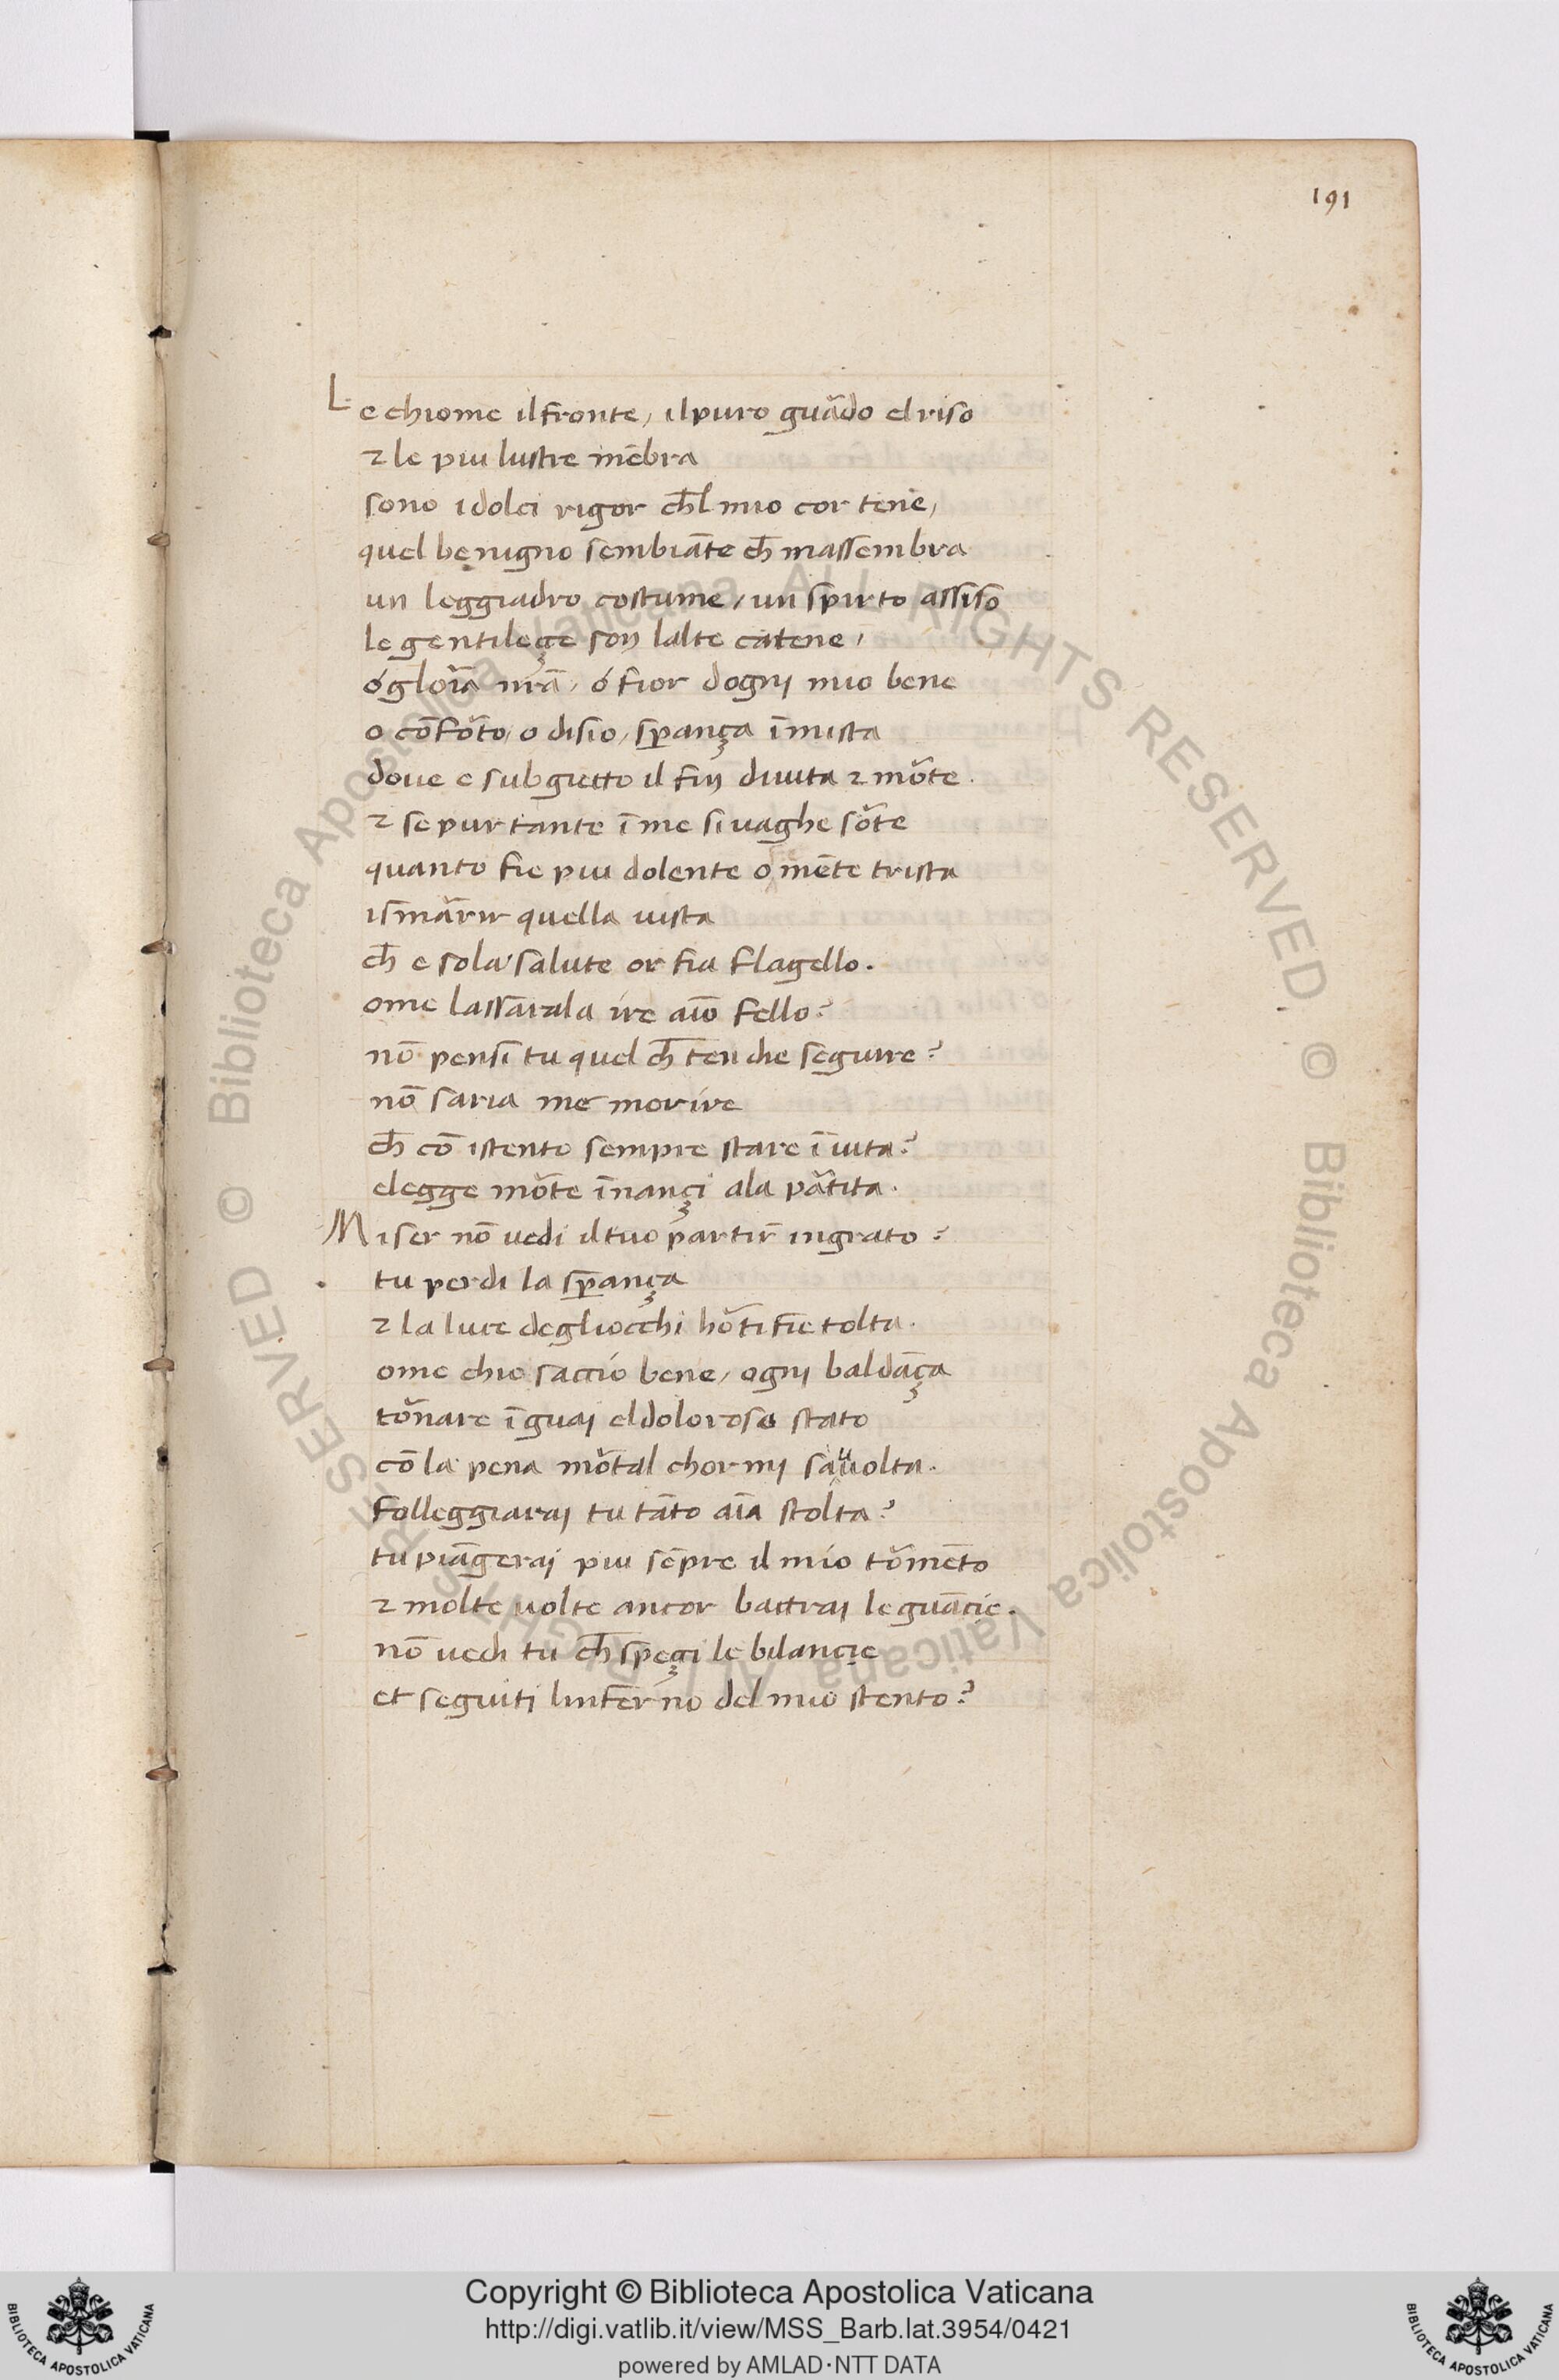 191
Le chiome il fronte, il puro guãdo el riso
⁊ le piu lustre mẽbra
sono i dolci rigor ch̄l mio cor tene,
quel benigno sembiãte ch̄ massembra
un leggiadro costume, un spirto assiso
le gentileçe son lalte catene,
ó gloĩa mĩa, ó fior dogni mio bene
o cõfõto, o disio, sp̃ança ĩmista
doue e subgietto il fin di uita ⁊ mõte.
⁊ se pur tante ĩ me si uaghe sõte
quanto fie piu dolente o mẽte trista
ismãrir quella uista
ch̄ e sola salute or fia flagello.
ome lassãrala ire aĩo fello?
nõ pensi tu quel ch̄ ten die seguire?
nõ saria me morire
ch̄ cõ istento sempre stare ĩ uita?
elegge mõte ĩnançi ala pãtita.
Miser nõ uedi il tuo partir̃ ingrato?
tu perdi la sp̃ança
⁊ la luce degliocchi hõ ti fie tolta.
ome chio saccio bene, ogni baldãça
tõnare ĩ guai el doloroso stato
cõ la pena mõtal chor mi sauuolta.
folleggiarai tu tãto aĩa stolta?
tu piãgerai piu sẽpre il mio tõmẽto
⁊ molte uolte ancor battrai le guãcie.
nõ uedi tu ch̄ sp̃eçi le bilancie
et seguiti linferno del mio stento?
© Biblioteca Apostolica Vaticana ALL RIGHTS RESERVED © Biblioteca Apostolica Vaticana ALL RIGHTS RESERVED
Copyright © Biblioteca Apostolica Vaticana
http://digi.vatlib.it/view/MSS_Barb.lat.3954/0421
powered by AMLAD·NTT DATA
BIBLIOTECA APOSTOLICA VATICANA
BIBLIOTECA APOSTOLICA VATICANA